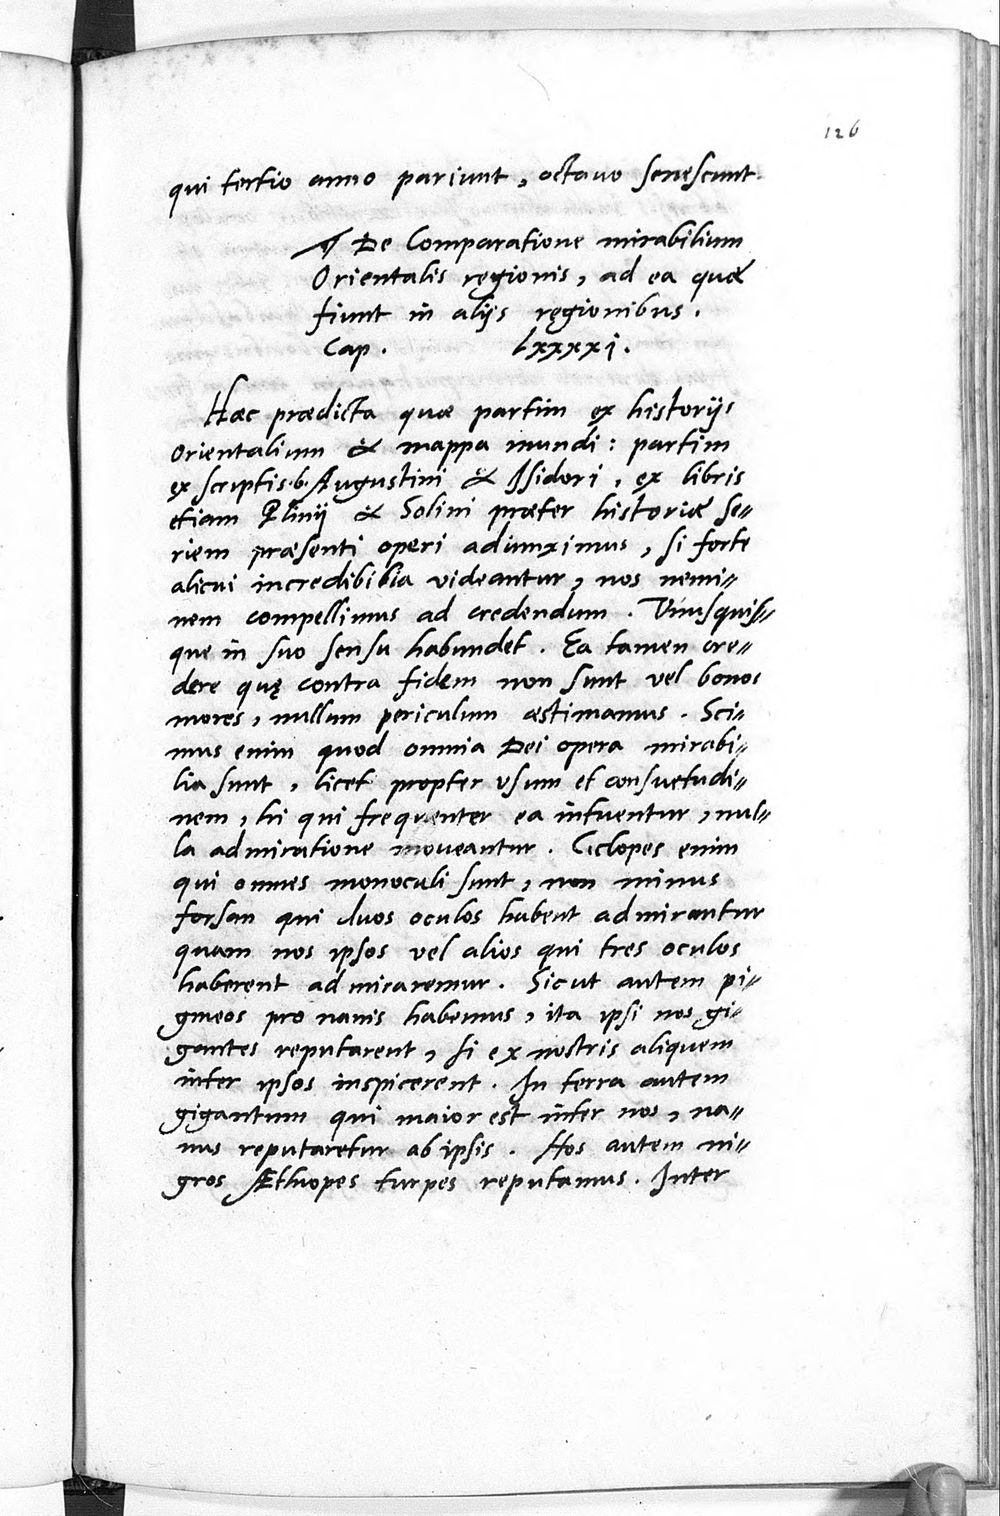 126
qui tertio anno pariunt, octauo senescunt.
¶ De Comparatione mirabilium
Orientalis regionis, ad ea quæ
fiunt in alijs regionibus.
Cap. lxxxxi.
Hæc prædicta quæ partim ex historijs
orientalium & mappa mundi: partim
ex scriptis .b. Augustini & Isidori, ex libris
etiam Plinij & Solini præter historiæ se〃
riem præsenti operi adiunximus, si forte
alicui incredibilia videantur, nos nemi〃
nem compellimus ad credendum. Vnusquis〃
que in suo sensu habundet. Ea tamen cre〃
dere quę contra fidem non sunt vel bonos
mores, nullum periculum æstimamus. Sci〃
mus enim quod omnia Dei opera mirabi〃
lia sunt, licet propter vsum et consuetudi〃
nem, hi qui frequenter ea intuentur, nul〃
la admiratione moueantur. Ciclopes enim
qui omnes monoculi sunt, non minus
forsan qui duos oculos habent admirantur
quam nos ipsos vel alios qui tres oculos
haberent admiraremur. Sicut autem pi〃
gmeos pro nanis habemus, ita ipsi nos gi〃
gantes reputarent, si ex nostris aliquem
inter ipsos inspicerent. In terra autem
gigantum qui maior est inter nos, na〃
nus reputaretur ab ipsis. Nos autem ni〃
gros Æthiopes turpes reputamus. Inter